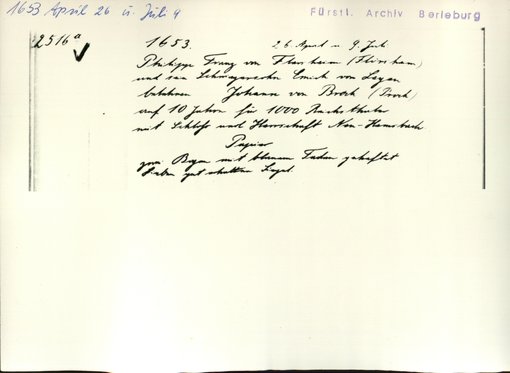 1653 April 26 u. Juli 9
Fürstl. Archiv Berleburg
2516a
1653. 26 April u 9. Juli
Philipp Franz von Flersheim (Flörsheim)
und sein Schwager Emich von Leyen
belehnen Johann von Brock (Prock)
auf 10 Jahre für 1000 Reichsthaler
mit Schloß und Herrschaft Neu-Hemsbach
Papier
zwei Bogen mit blauem Faden geheftet
gut erhaltene Siegel